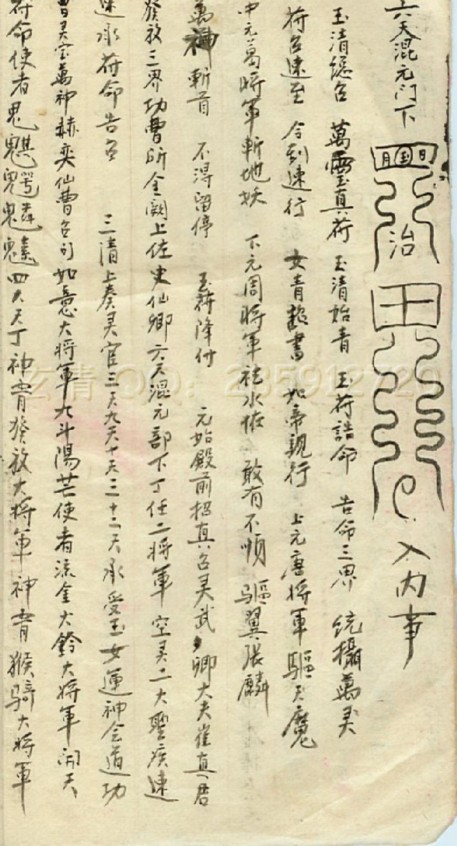 六天混元门下 治 入内事
玉清總召 萬灵玉真符 玉清始青 玉符誥命 告命三界 統攝萬灵
符召速至 令到速行 女青 書 如帝親行 上元唐將軍驅天魔
中元葛將軍斬地妖 下元周將軍 水怪 敢有不順 驅翼張麟
萬神斬首 不得留停 玉符降付 元始殿前招真召灵武卿大夫崔真君
發放三界功曹 金闕上佐史仙卿六天混元部下丁任二將軍 空灵二大聖疾速
速承符命告召 三清上奏灵官三天九天六十天三十二天承受玉女運神会道功
曹灵宝萬神赫奕仙曹召 如意大將軍九斗陽芒使者流金大鈴大將軍
符命使者鬼魁 四大天丁神霄發放大將軍神霄猴騎大將軍
玄清 QQ：235912720